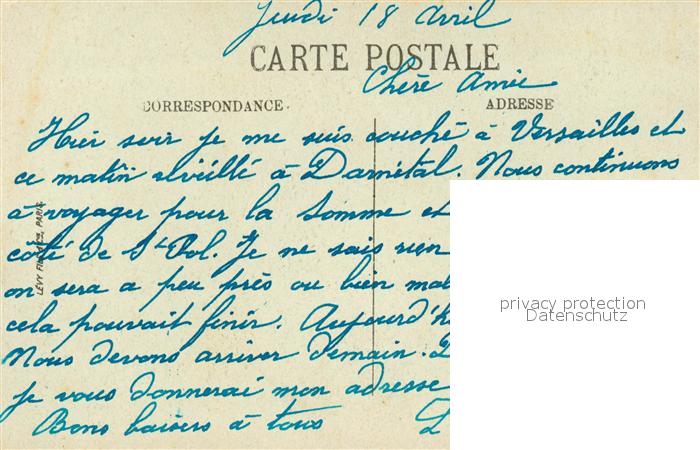 Jeudi 18 Avril
CARTE POSTALE
Chère Amie
CORRESPONDANCE. ADRESSE
Hier soir je me suis couché à Versailles et
ce matin réveillé à Darnétal. Nous continuons
à voyager pour la Somme et
côté de St Pol. Je ne sais rien
on sera a peu près ou bien mal
cela pouvait finir. Aujourd'h
Nous devons arriver demain.
je vous donnerai mon adresse
Bons baisers à tous
LÉVY FILS & Cie, PARIS
privacy protection
Datenschutz